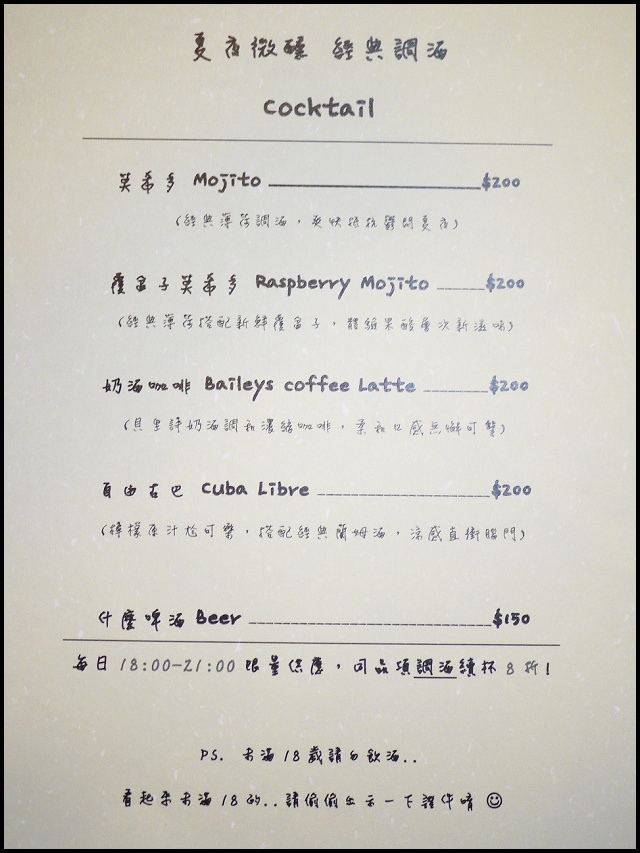 夏夜微醺 經典調酒
Cocktail
莫希多 Mojito $200
(經典薄荷調酒，爽快抵抗鬱悶夏夜)
覆盆子莫希多 Raspberry Mojito $200
(經典薄荷搭配新鮮覆盆子，體驗果酸層次新滋味)
奶酒咖啡 Baileys coffee Latte $200
(貝里詩奶酒調和濃縮咖啡，柔和口感無懈可擊)
自由古巴 Cuba Libre $200
(檸檬原汁尬可樂，搭配經典蘭姆酒，涼感直衝腦門)
什麼啤酒 Beer $150
每日 18:00-21:00 限量供應，同品項調酒續杯 8 折!
PS. 未滿 18 歲請勿飲酒..
看起來未滿 18 的..請偷偷出示一下證件唷 ☺